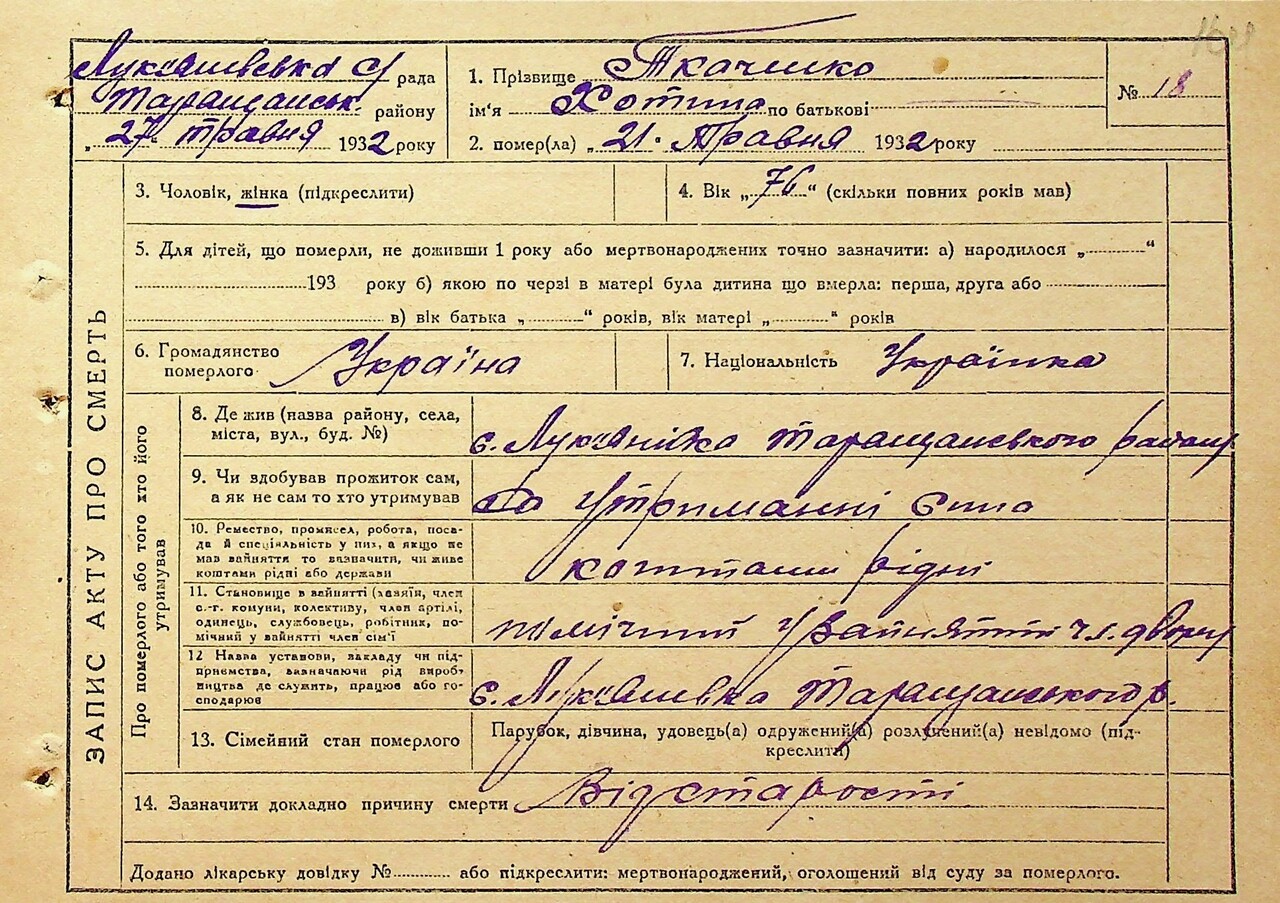 1621
Лукяшівська с/рада
Таращанськ. району
„27“ травня 1932 року
1. Прізвище Ткаченко
ім'я Хотина по батькові
2. помер(ла) „21“ Травня 1932 року
№ 18
ЗАПИС АКТУ ПРО СМЕРТЬ
3. Чоловік, жінка (підкреслити)
4. Вік „76“ (скільки повних років мав)
5. Для дітей, що померли, не доживши 1 року або мертвонароджених точно зазначити: а) народилося „ “
193 року б) якою по черзі в матері була дитина що вмерла: перша, друга або
в) вік батька „ “ років, вік матері „ “ років
6. Громадянство
померлого Україна
7. Національність Українка
Про померлого або того хто його
утримував
8. Де жив (назва району, села,
міста, вул., буд. №)
с. Лукяшівка таращанського району
9. Чи здобував прожиток сам,
а як не сам то хто утримував
На Утриманні Сина
10. Ремество, промисел, робота, поса-
да й спеціяльність у них, а якщо не
мав зайняття то вазначити, чи живе
коштами рідні або держави
коштами рідні
11. Становище в зайнятті (хазяїн, член
с.-г. комуни, колективу, член артілі,
одинець, службовець, робітник, по-
мічний у зайнятті член сім'ї
помічний У зайнятті чл. двору
12 Назва установи, закладу чи під-
приємства, вазначаючи рід вироб-
ництва де служить, працює або го-
сподарює
с. Лукяшівка Таращанського р.
13. Сімейний стан померлого
Парубок, дівчина, удовець(а) одружений(а) розлучений(а) невідомо (під-
креслити)
14. Зазначити докладно причину смерти Від старости
Додано лікарську довідку № або підкреслити: мертвонароджений, оголошений від суду за померлого.